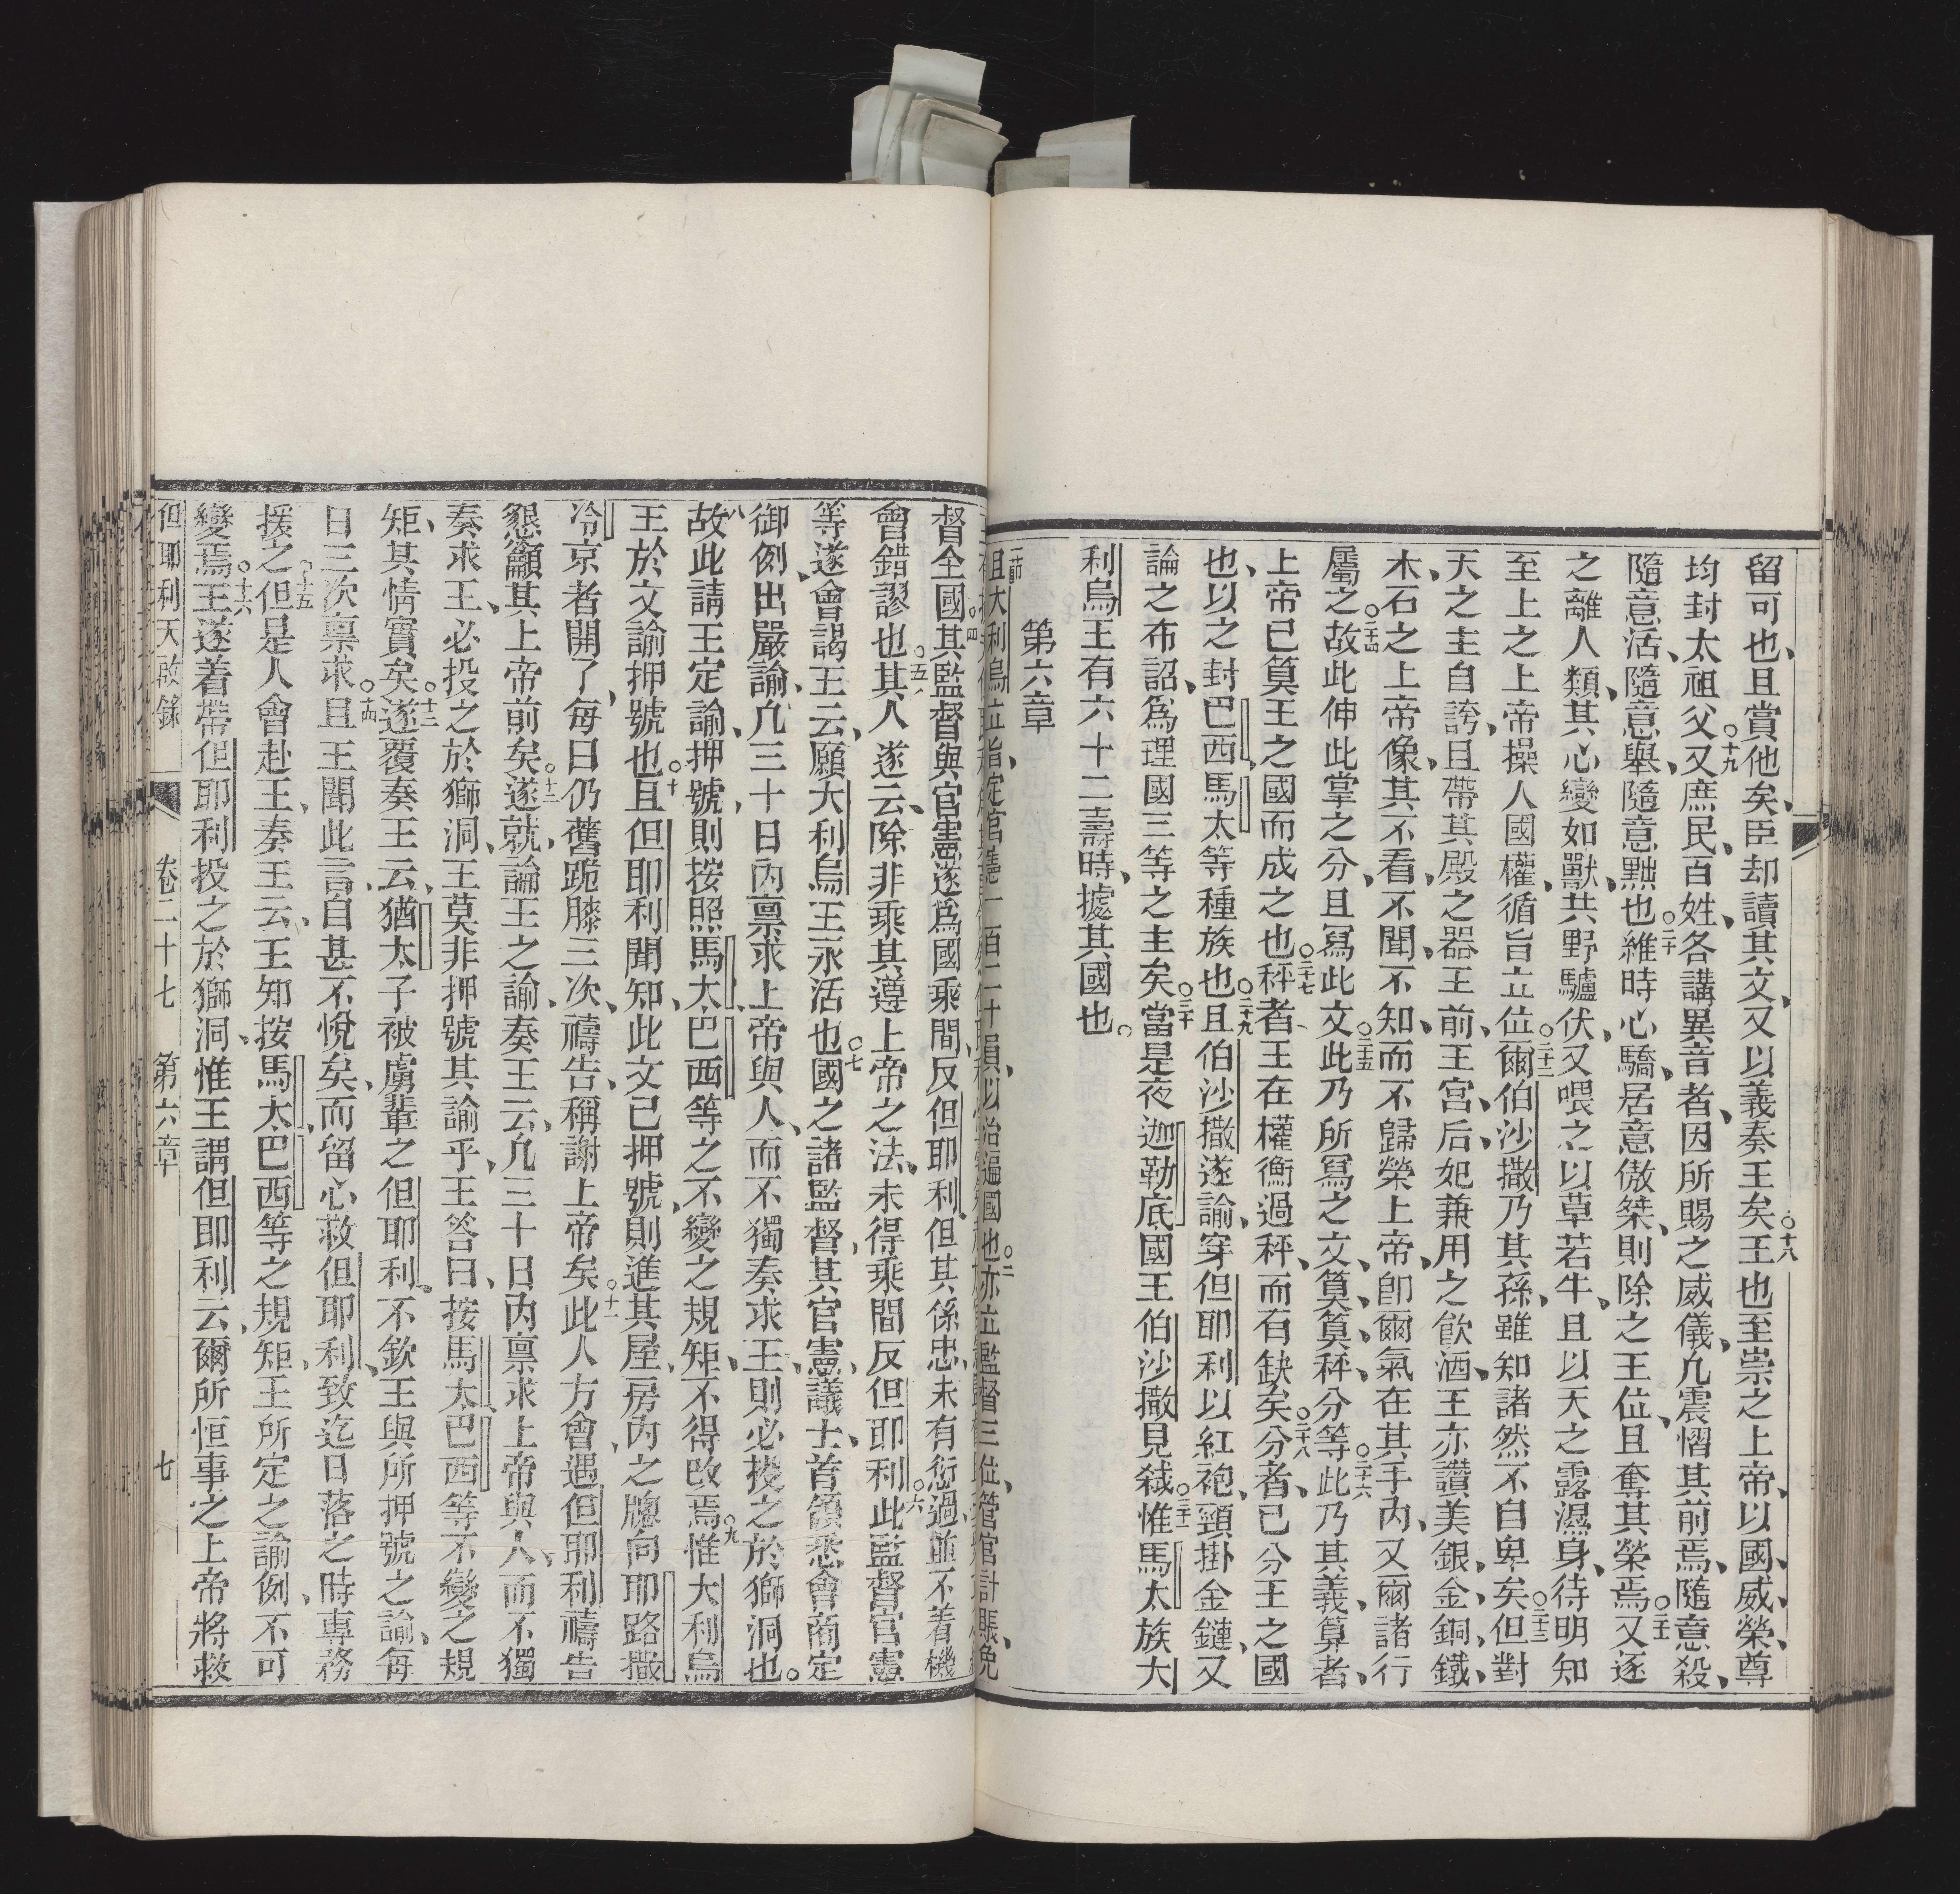 留可也、且賞他矣臣却讀其文、又以義奏王矣○十八王也至崇之上帝、以國、威、榮、尊
均封太祖父○十九又庶民、百姓、各講異音者、因所賜之威儀、凢震慴其前焉、隨意殺、
隨意活、隨意舉、隨意黜也○二十維時心驕、居意傲桀、則除之王位、且奪其榮焉○二十一又逐
之離人類、其心變如獸、共野驢伏、又喂之以草若牛、且以天之露濕身、待明知
至上之上帝操人國權、循旨立位○二十二爾伯沙撒乃其孫、雖知諸然不自卑矣○二十三但對
天之主自誇、且帶其殿之器王前、王宮、后、妃兼用之飲酒、王亦讚美銀、金、銅、鐵、
木、石之上帝像、其不看、不聞、不知、而不歸榮上帝、卽爾氣在其手內、又爾諸行
屬之○二十四故此伸此掌之分、且寫此文○二十五此乃所寫之文、算、算、秤、分等○二十六此乃其義、算者、
上帝已算王之國而成之也○二十七秤者、王在權衡過秤、而有缺矣○二十八分者、已分王之國
也、以之封巴西、馬太等種族也○二十九且伯沙撒遂諭、穿但耶利以紅袍、頸掛金鏈、又
論之布詔、爲理國三等之主矣○三十當是夜迦勒底國王伯沙撒見弒○三十一惟馬太族大
利烏王有六十二壽時、據其國也。
第六章
一節且大利烏立指定官憲一百二十員、以治遍國也○二亦立監督三位、管官計賬、免
督全國○四其監督與官憲遂爲國乘間、反但耶利、但其係忠、未有衍過、並不着機
會錯謬也○五其人遂云、除非乘其遵上帝之法、未得乘間反但耶利○六此監督官憲
等、遂會謁王云、願大利烏王永活也○七國之諸監督、其官憲、議士、首領悉會商定
御例、出嚴諭、凢三十日內禀求上帝與人、而不獨奏求王、則必投之於獅洞也。
八故此請王定諭、押號、則按照馬太、巴西等之不變之規矩、不得改焉○九惟大利烏
王於文諭押號也○十且但耶利聞知、此文已押號、則進其屋、房內之牕向耶路撒
冷京者開了、每日仍舊跪膝三次、禱告、稱謝上帝矣○十一此人方會遇但耶利禱告
懇籲其上帝前矣○十二遂就、論王之諭、奏王云、凢三十日內禀求上帝與人、而不獨
奏求王、必投之於獅洞、王莫非押號其諭乎、王答曰、按馬太、巴西等不變之規
矩、其情實矣○十三遂覆奏王云、猶太子被虜輩之但耶利、不欽王與所押號之諭、每
日三次禀求○十四且王聞此言、自甚不悅矣、而留心救但耶利、致迄日落之時專務
援之○十五但是人會赴王、奏王云、王知按馬太、巴西等之規矩、王所定之諭例、不可
變焉○十六王遂着帶但耶利投之於獅洞、惟王謂但耶利云、爾所恒事之上帝將救
但耶利天啟錄　卷二十七　第六章　七